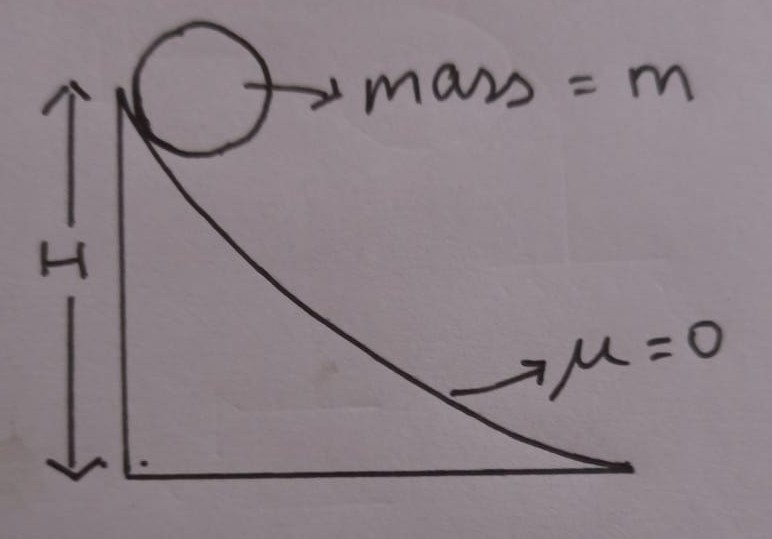 mass = m
H
μ = 0